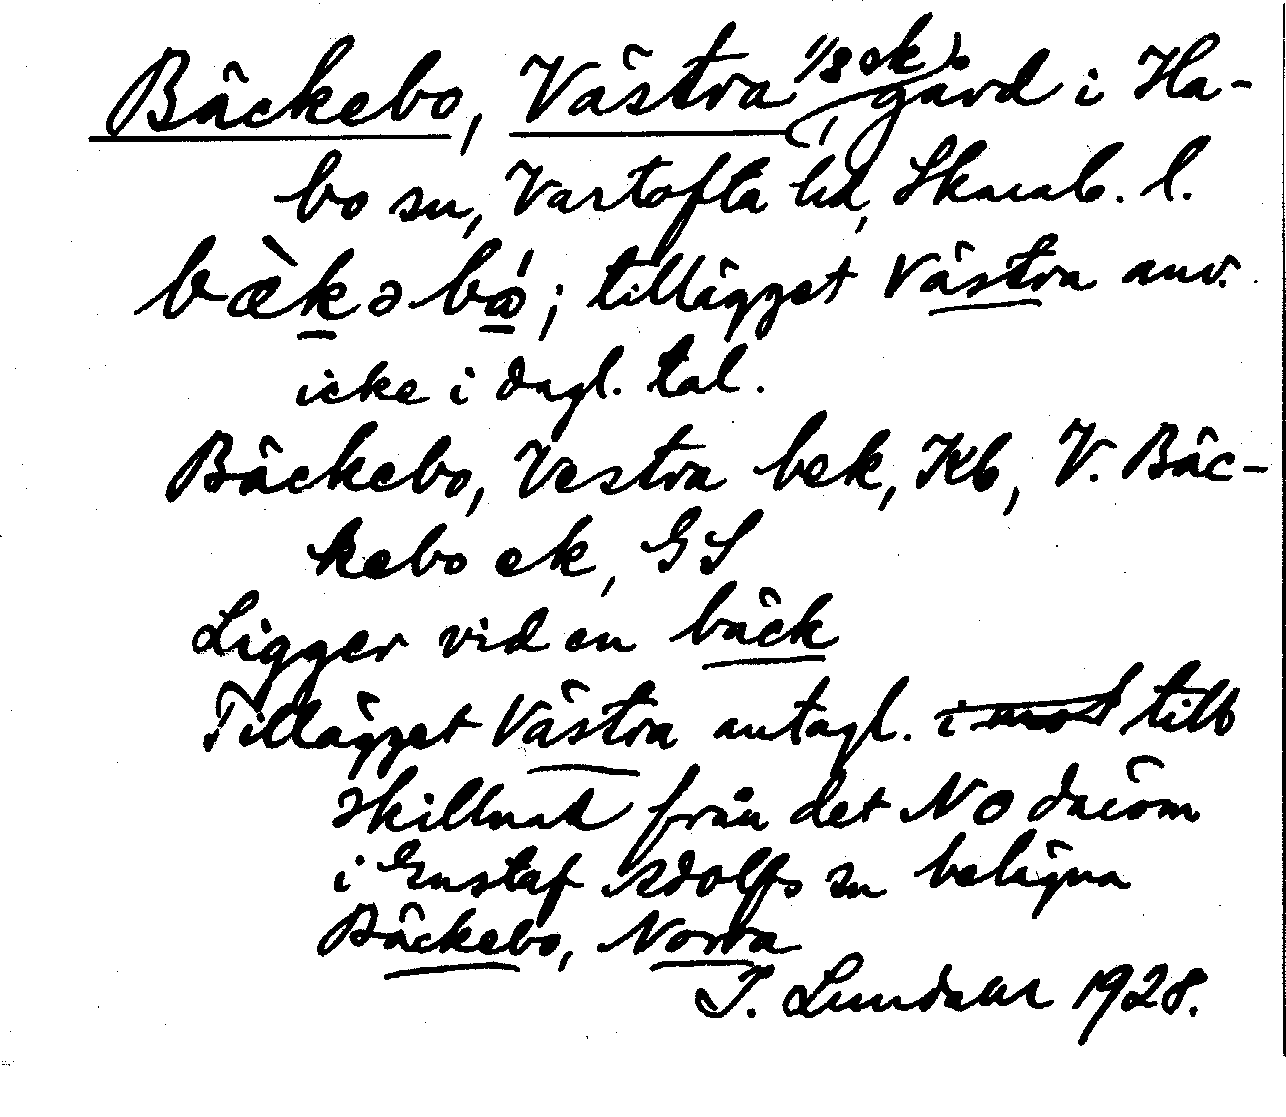 Bäckebo, Västra, 1/8 ek, gård i Ha-
bo sn, Vartofta hd, Skarab. l.
bæ̀kəbó; tillägget Västra anv.
icke i dagl. tal.
Bäckebo, Vestra bek, Kb, V. Bäc-
kebo ek, GS
Ligger vid en bäck
Tillägget Västra antagl. i mot till
skillnad från det NO därom
i Gustaf Adolfs sn belägna
Bäckebo, Norra
I. Lundahl 1928.